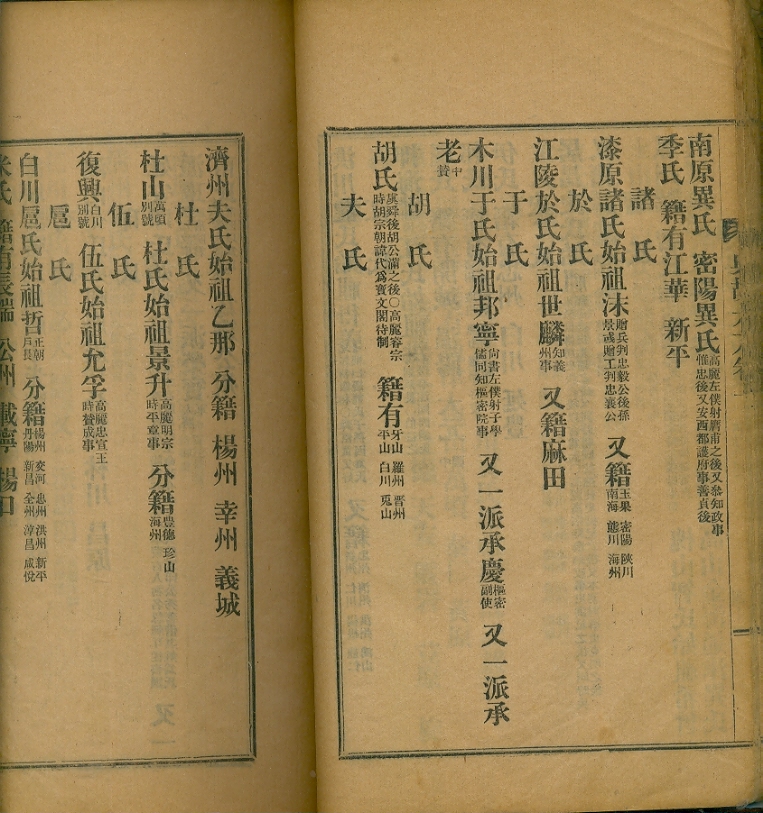 南原異氏 密陽異氏 高麗左僕射膺甫之後又叅知政事惟忠後又安西都護府事善貞後
季氏 籍有江華 新平
諸氏
漆原諸氏始祖沫 贈兵判忠毅公後孫景彧贈工判忠義公 又籍 玉果 密陽 陜川 南海 熊川 海州
於氏
江陵於氏始祖世麟 知義州事 又籍麻田
于氏
木川于氏始祖邦寧 尙書左僕射子學儒同知樞密院事 又一派承慶 樞密副使 又一派承
老 中贊
胡氏
胡氏 虞舜後胡公滿之後○高麗睿宗時胡宗朝諱代爲寶文閣待制 籍有 牙山 羅州 晋州 平山 白川 兎山
夫氏
濟州夫氏始祖乙那 分籍 楊州 幸州 義城
杜氏
杜山 萬頃別號 杜氏始祖景升 高麗明宗時平章事 分籍 豊德 珍山 海州
伍氏
復興 白川別號 伍氏始祖允孚 高麗忠宣王時贊成事
扈氏
白川扈氏始祖哲 正朝戶長 分籍 楊州 交河 忠州 洪州 新平 丹陽 新昌 全州 淳昌 咸悅
米氏 籍有長湍 公州 載寧